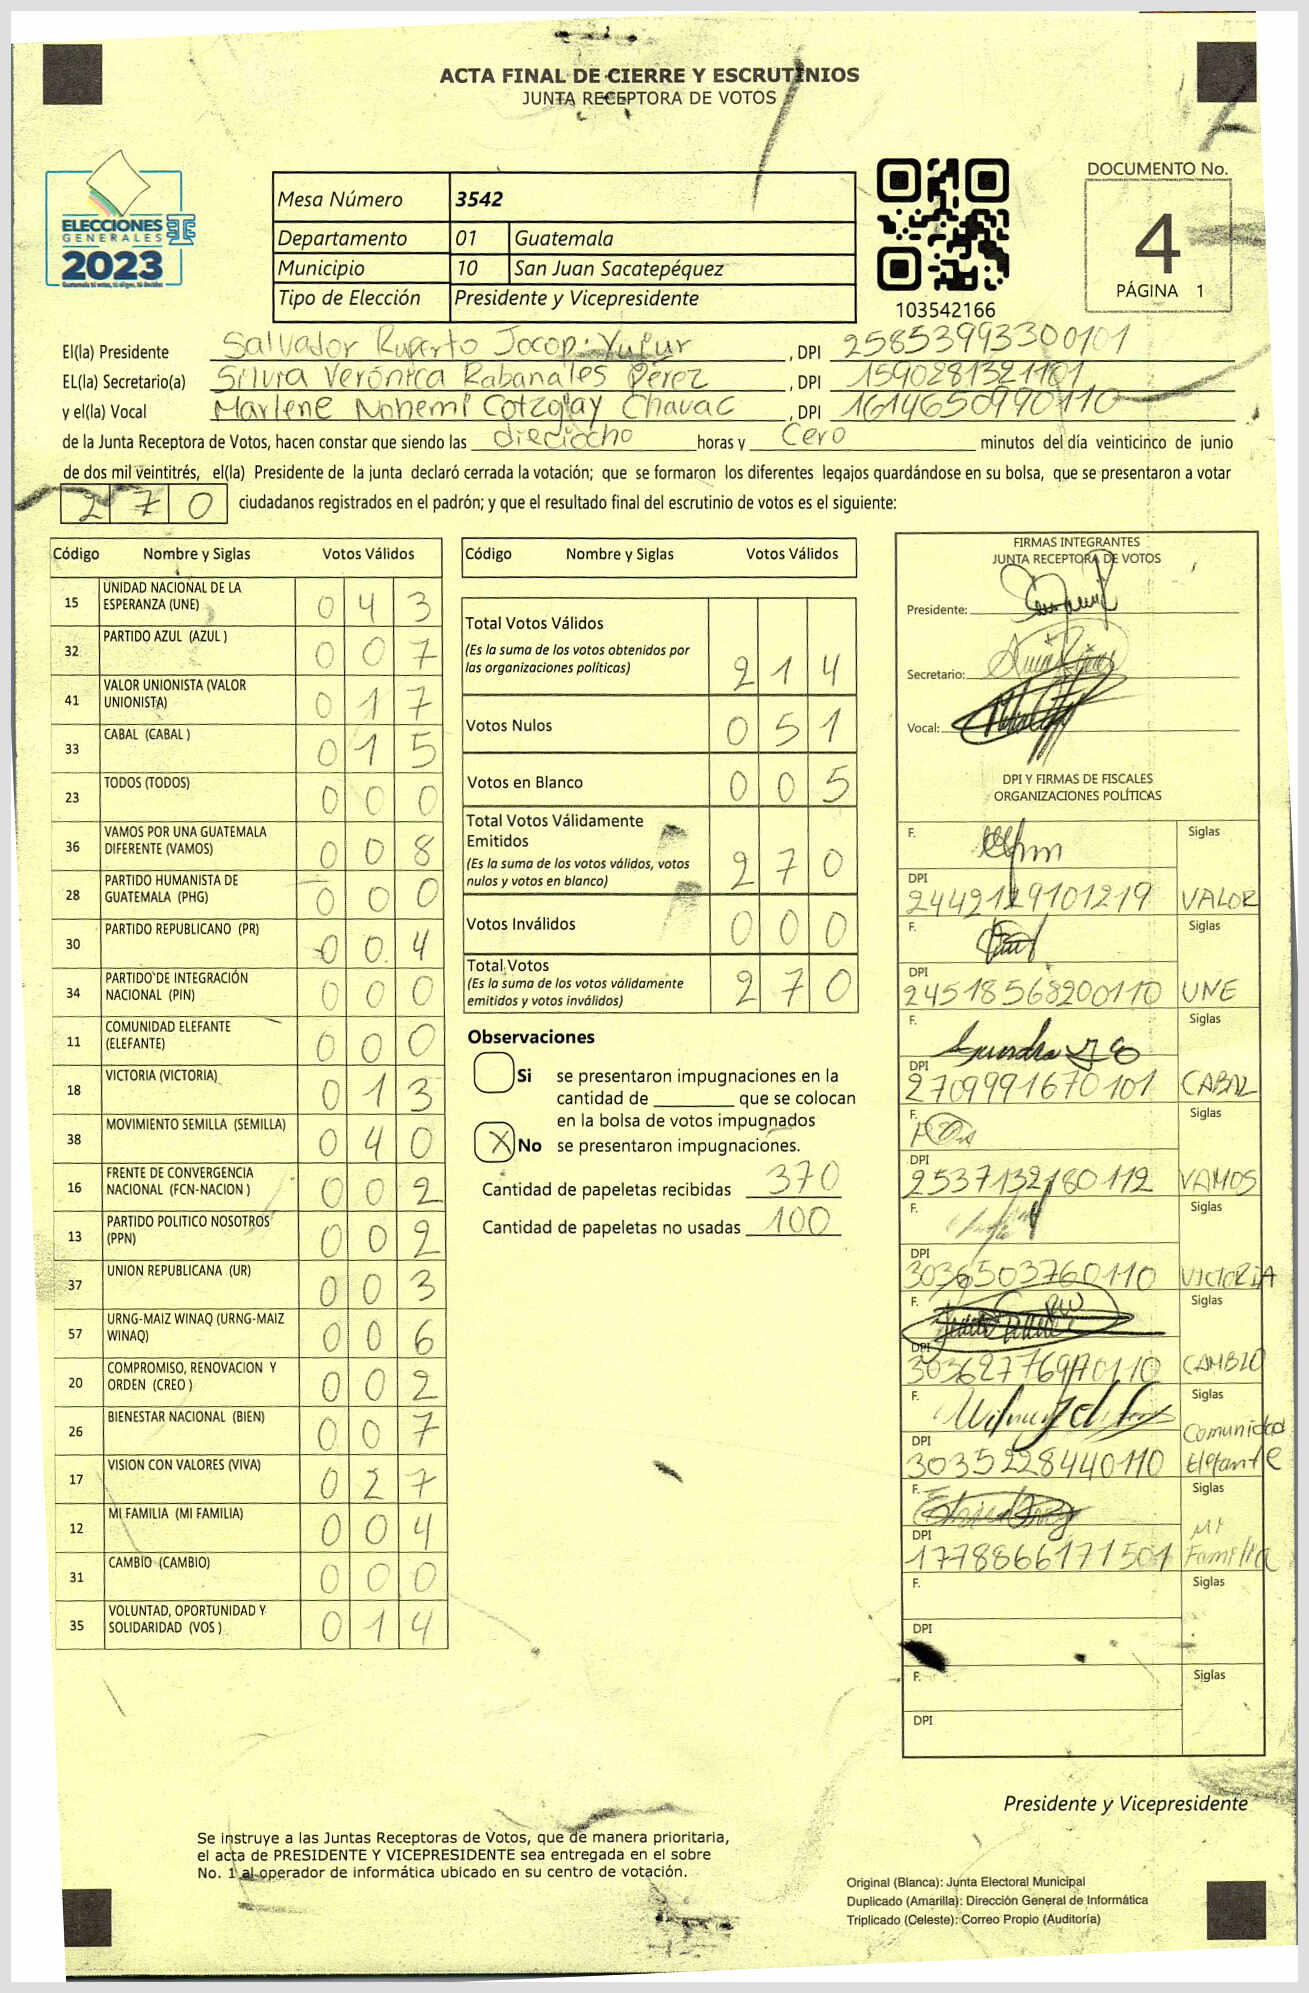 ACTA FINAL DE CIERRE Y ESCRUTINIOS
JUNTA RECEPTORA DE VOTOS
ELECCIONES
GENERALES
2023
Mesa Número 3542
Departamento 01 Guatemala
Municipio 10 San Juan Sacatepéquez
Tipo de Elección Presidente y Vicepresidente
103542166
DOCUMENTO No.
4
PÁGINA 1
El(la) Presidente Salvador Ruperto Jocop , DPI 25853993300101
EL(la) Secretario(a) Silvia Verónica Rabanales Pérez , DPI 1590281321101
y el(la) Vocal Marlene Nohemi Chavac , DPI 1614650990110
de la Junta Receptora de Votos, hacen constar que siendo las dieciocho horas y Cero minutos del día veinticinco de junio
de dos mil veintitrés, el(la) Presidente de la junta declaró cerrada la votación; que se formaron los diferentes legajos guardándose en su bolsa, que se presentaron a votar
270 ciudadanos registrados en el padrón; y que el resultado final del escrutinio de votos es el siguiente:
Código Nombre y Siglas Votos Válidos
15 UNIDAD NACIONAL DE LA ESPERANZA (UNE) 0 4 3
32 PARTIDO AZUL (AZUL ) 0 0 7
41 VALOR UNIONISTA (VALOR UNIONISTA) 0 1 7
33 CABAL (CABAL ) 0 1 5
23 TODOS (TODOS) 0 0 0
36 VAMOS POR UNA GUATEMALA DIFERENTE (VAMOS) 0 0 8
28 PARTIDO HUMANISTA DE GUATEMALA (PHG) 0 0 0
30 PARTIDO REPUBLICANO (PR) 0 0 4
34 PARTIDO DE INTEGRACIÓN NACIONAL (PIN) 0 0 0
11 COMUNIDAD ELEFANTE (ELEFANTE) 0 0 0
18 VICTORIA (VICTORIA) 0 1 3
38 MOVIMIENTO SEMILLA (SEMILLA) 0 4 0
16 FRENTE DE CONVERGENCIA NACIONAL (FCN-NACION ) 0 0 2
13 PARTIDO POLITICO NOSOTROS (PPN) 0 0 2
37 UNION REPUBLICANA (UR) 0 0 3
57 URNG-MAIZ WINAQ (URNG-MAIZ WINAQ) 0 0 6
20 COMPROMISO, RENOVACION Y ORDEN (CREO ) 0 0 2
26 BIENESTAR NACIONAL (BIEN) 0 0 7
17 VISION CON VALORES (VIVA) 0 2 7
12 MI FAMILIA (MI FAMILIA) 0 0 4
31 CAMBIO (CAMBIO) 0 0 0
35 VOLUNTAD, OPORTUNIDAD Y SOLIDARIDAD (VOS ) 0 1 4
Código Nombre y Siglas Votos Válidos
Total Votos Válidos
(Es la suma de los votos obtenidos por
las organizaciones políticas) 2 1 4
Votos Nulos 0 5 1
Votos en Blanco 0 0 5
Total Votos Válidamente
Emitidos
(Es la suma de los votos válidos, votos
nulos y votos en blanco) 2 7 0
Votos Inválidos 0 0 0
Total Votos
(Es la suma de los votos válidamente
emitidos y votos inválidos) 2 7 0
Observaciones
Si se presentaron impugnaciones en la
cantidad de ________ que se colocan
en la bolsa de votos impugnados
X No se presentaron impugnaciones.
Cantidad de papeletas recibidas 370
Cantidad de papeletas no usadas 100
FIRMAS INTEGRANTES
JUNTA RECEPTORA DE VOTOS
Presidente:
Secretario:
Vocal:
DPI Y FIRMAS DE FISCALES
ORGANIZACIONES POLÍTICAS
F. Siglas
DPI
VALOR
F. Siglas
DPI
24518568200110 UNE
F. Siglas
DPI
2709991670101 CABAL
F. Siglas
DPI
2537132180112 VAMOS
F. Siglas
DPI
3036503760110 VICTORIA
F. Siglas
DPI
CAMBIO
F. Siglas
Comunidad
DPI
3035228440110 Elefante
F. Siglas
Mi
DPI
1778866171501 Familia
F. Siglas
DPI
F. Siglas
DPI
Presidente y Vicepresidente
Se instruye a las Juntas Receptoras de Votos, que de manera prioritaria,
el acta de PRESIDENTE Y VICEPRESIDENTE sea entregada en el sobre
No. 1 al operador de informática ubicado en su centro de votación.
Original (Blanca): Junta Electoral Municipal
Duplicado (Amarilla): Dirección General de Informática
Triplicado (Celeste): Correo Propio (Auditoría)